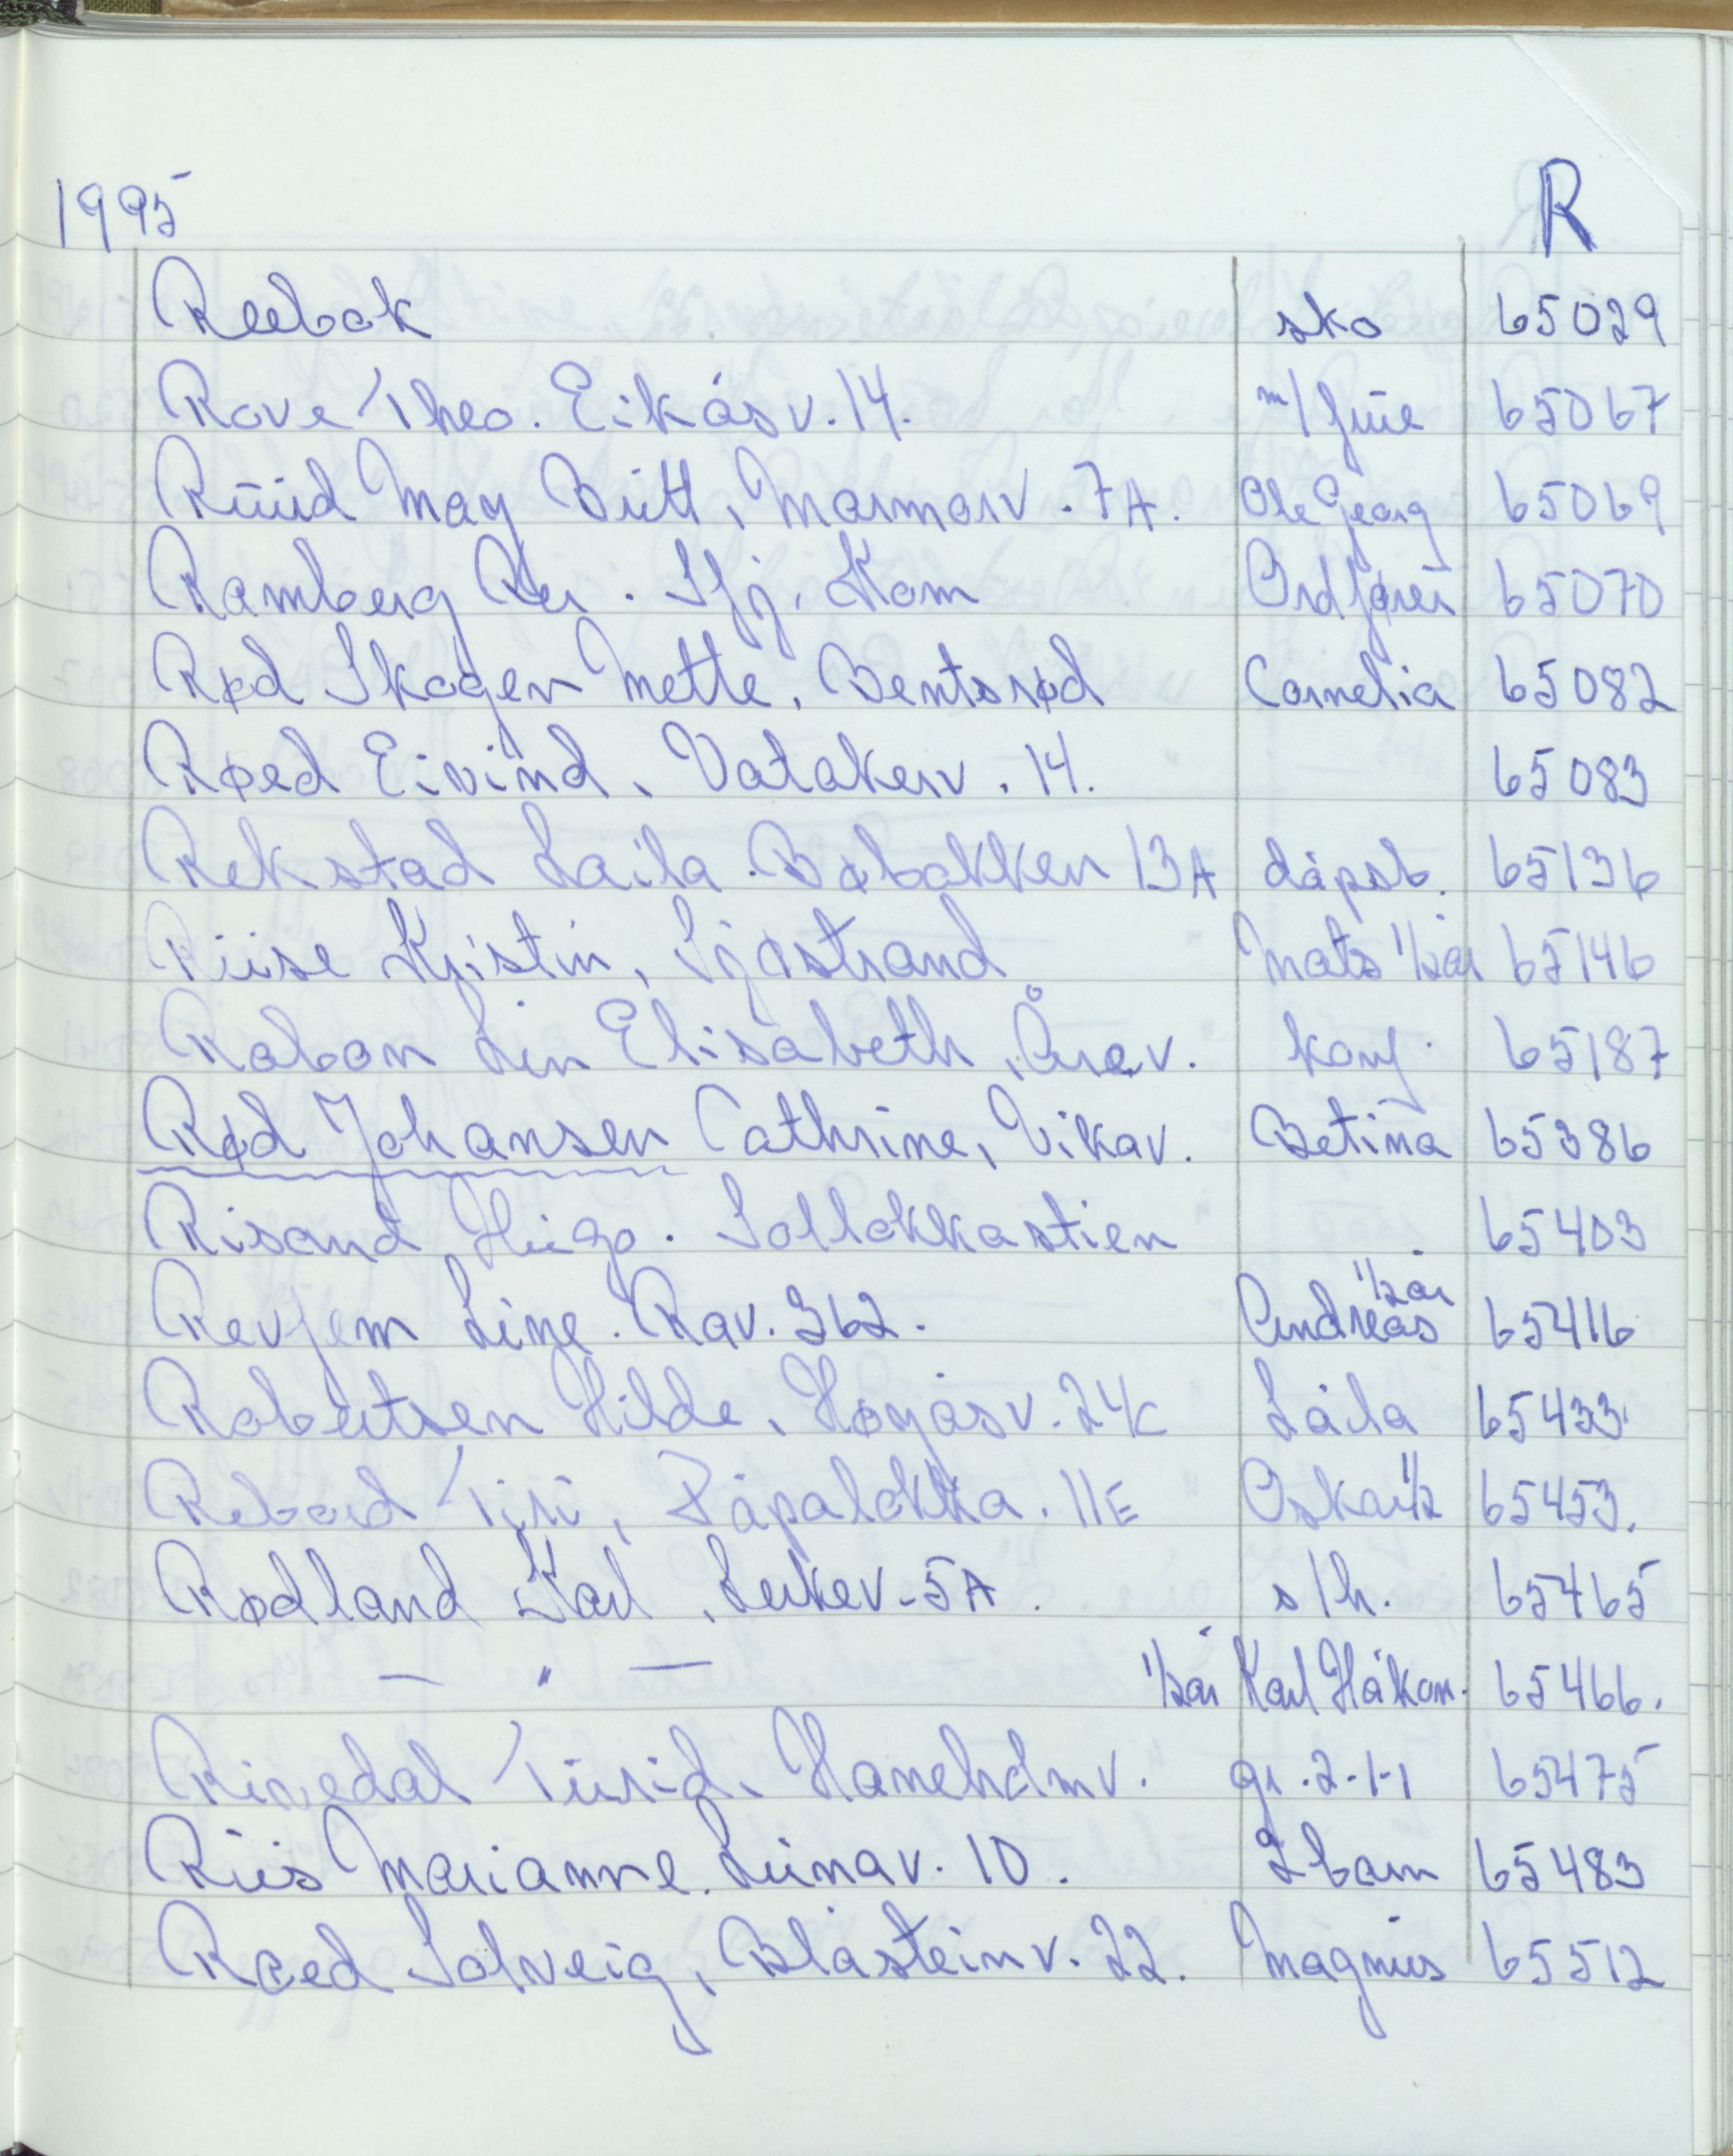 1995 R
Reebok sko 65029
Rove Theo. Eikåsv. 14. m/frue 65067
Ruud May Britt, Marmorv. 7A. Ole Georg 65069
Ramberg Per. Sfj. Kom Ordfører 65070
Rød Skogen Mette, Bentsrød Cornelia 65082
Røed Eivind, Vatakerv. 14. 65083
Rekstad Laila. Bøbakken 13A dåpsb. 65136
Riise Kristin, Sjøstrand Mats 1/2 år 65146
Robon Lin Elisabeth, Årøv. konf. 65187
Rød Johansen Cathrine, Vikav. Betina 65386
Risand Hugo. Sollokkastien 65403
Revjem Line. Rav. 362. Andreas 1/2 år 65416
Robertsen Hilde, Høyåsv. 24C Laila 65433
Rebord Tiri, Påpaløkka. 11E Oskar 1/2 65453.
Rødland Karl, Lerkev. 5A. s/h. 65465
— " — 1/2 år Karl Håkon. 65466.
Rivedal Turid, Haneholmv. gr. 2-1-1 65475
Riis Marianne. Lunav. 10. 2 barn 65483
Røed Solveig, Blåsteinv. 22. Magnus 65512